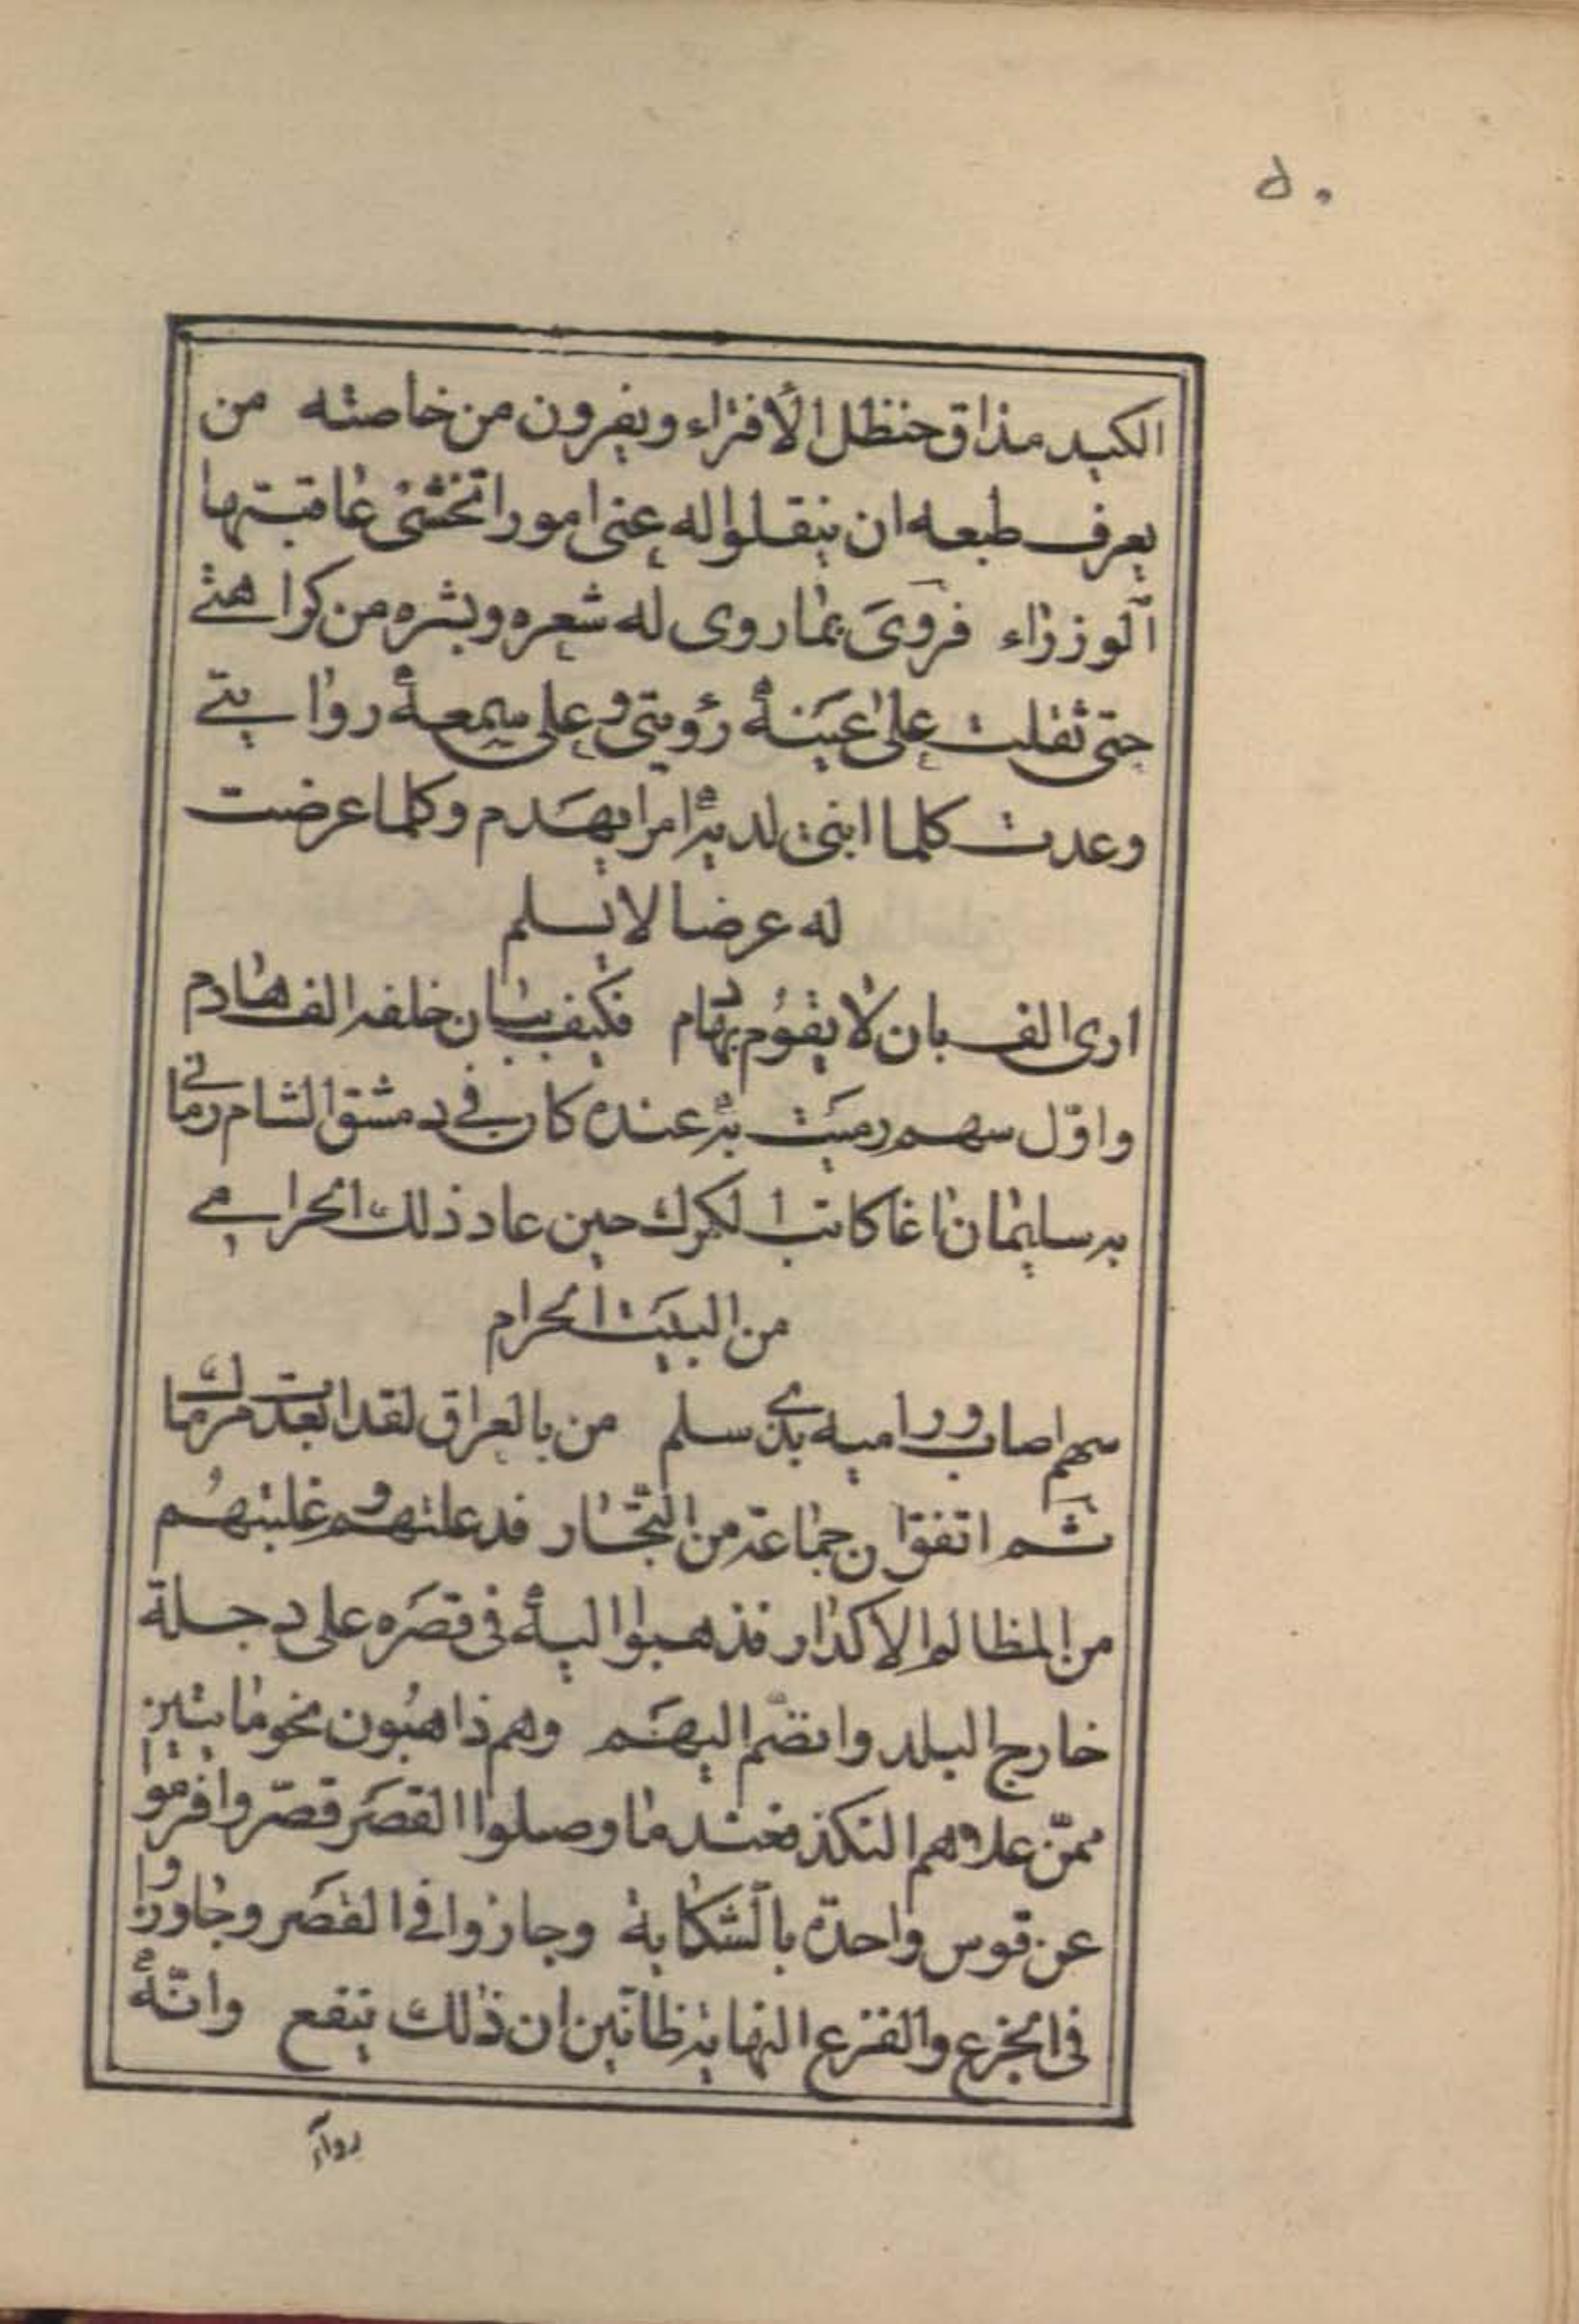 ٥٠
الكيد مذاق حنظل الأفتراء ويفرون من خاصته من
يعرف طبعه ان ينقلوا له عني امورا تخشى عاقبتها
الوزراء فروى بما روى له شعره وبشره من كراهتي
حتى ثقلت على عينه رؤيتي وعلى سمعه روايتي
وعدت كلما ابني لديه امرا يهدم وكلما عرضت
له عرضا لا يسلم
ارى الف بان لا يقوم بهادم فكيف ببان خلفه الف هادم
واول سهم رميت به عنده كان في دمشق الشام رماني
به سليمان اغا كاتب الكرك حين عاد ذلك الحرامي
من البيت الحرام
سهم اصاب وراميه بذي سلم من بالعراق لقد ابعدت مرماك
ثم اتفق ان جماعة من التجار قد علتهم وغلبتهم
من المظالم الاكدار فذهبوا اليه في قصره على دجلة
خارج البلد وانضم اليهم وهم ذاهبون نحو مايتين
ممن علاهم النكد فعند ما وصلوا القصر قصروا فرموا
عن قوس واحدة بالشكاية وجازوا في القصر وجاوزوا
في الجزع والفزع النهاية ظانين ان ذلك ينفع وانه